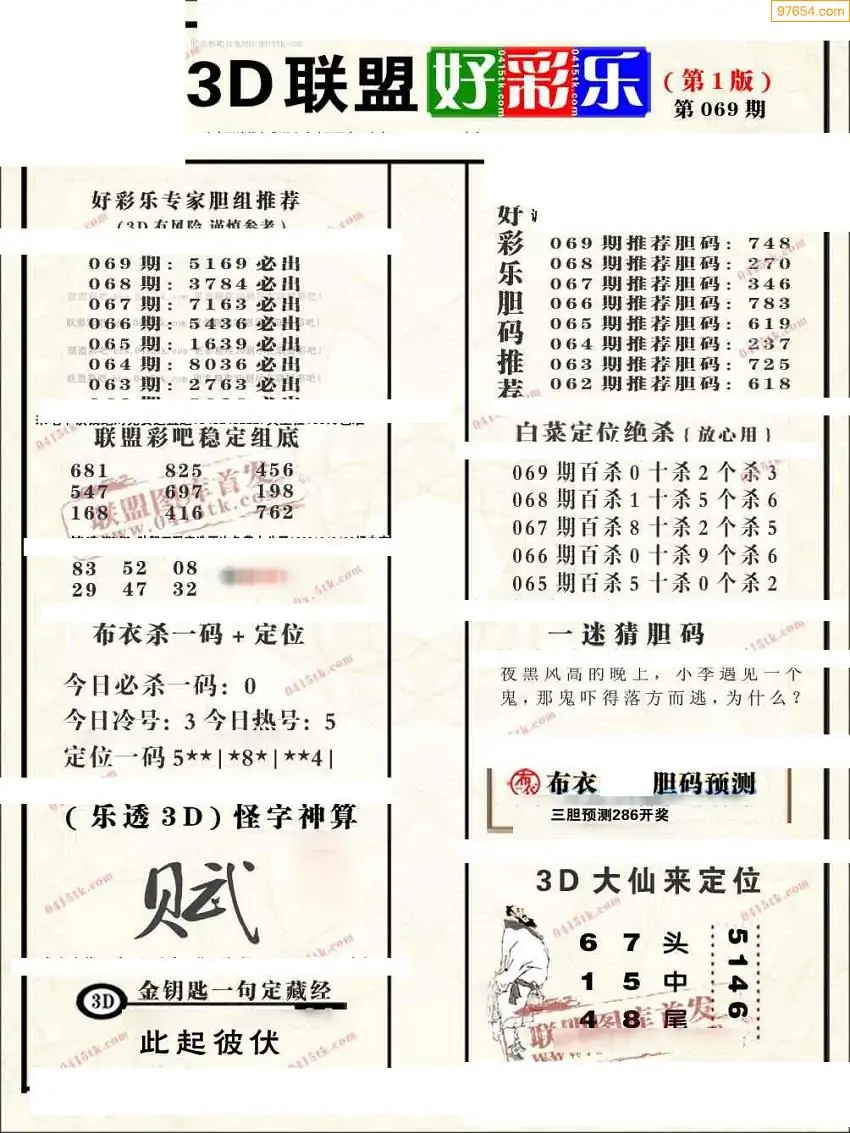 97654.com
3D联盟好彩乐
(第1版)
第069期
好彩乐专家胆组推荐
(3D有风险 谨慎参考)
069期:5169必出
068期:3784必出
067期:7163必出
066期:5436必出
065期:1639必出
064期:8036必出
063期:2763必出
联盟彩吧稳定组底
681 825 456
547 697 198
168 416 762
83 52 08
29 47 32
布衣杀一码+定位
今日必杀一码:0
今日冷号:3 今日热号:5
定位一码5**|*8*|**4|
(乐透3D)怪字神算
3D 金钥匙一句定藏经
此起彼伏
好彩乐胆码推荐
069期推荐胆码:748
068期推荐胆码:270
067期推荐胆码:346
066期推荐胆码:783
065期推荐胆码:619
064期推荐胆码:237
063期推荐胆码:725
062期推荐胆码:618
白菜定位绝杀{放心用}
069期百杀0十杀2个杀3
068期百杀1十杀5个杀6
067期百杀8十杀2个杀5
066期百杀0十杀9个杀6
065期百杀5十杀0个杀2
一迷猜胆码
夜黑风高的晚上,小李遇见一个
鬼,那鬼吓得落方而逃,为什么?
布衣 胆码预测
三胆预测286开奖
3D大仙来定位
6 7 头
1 5 中
4 8 尾
5146
联盟图库首发
www.0415tk.com
0415tk.com